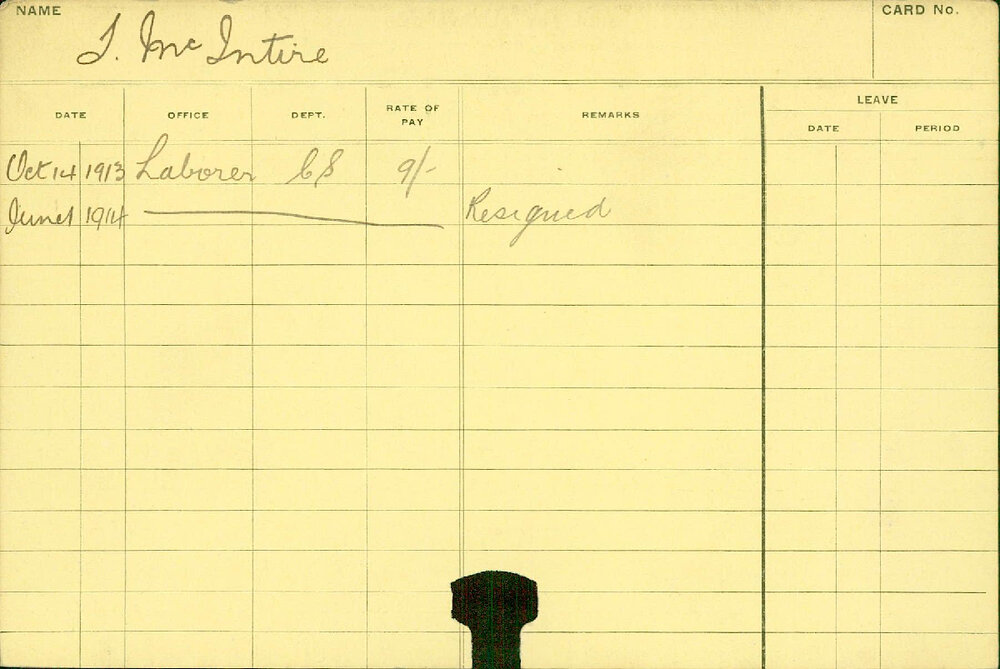 NAME
CARD No.
J. McIntire
DATE OFFICE DEPT. RATE OF PAY REMARKS LEAVE
DATE PERIOD
Oct 14 1913 Laborer CS 9/-
June 1 1914 Resigned